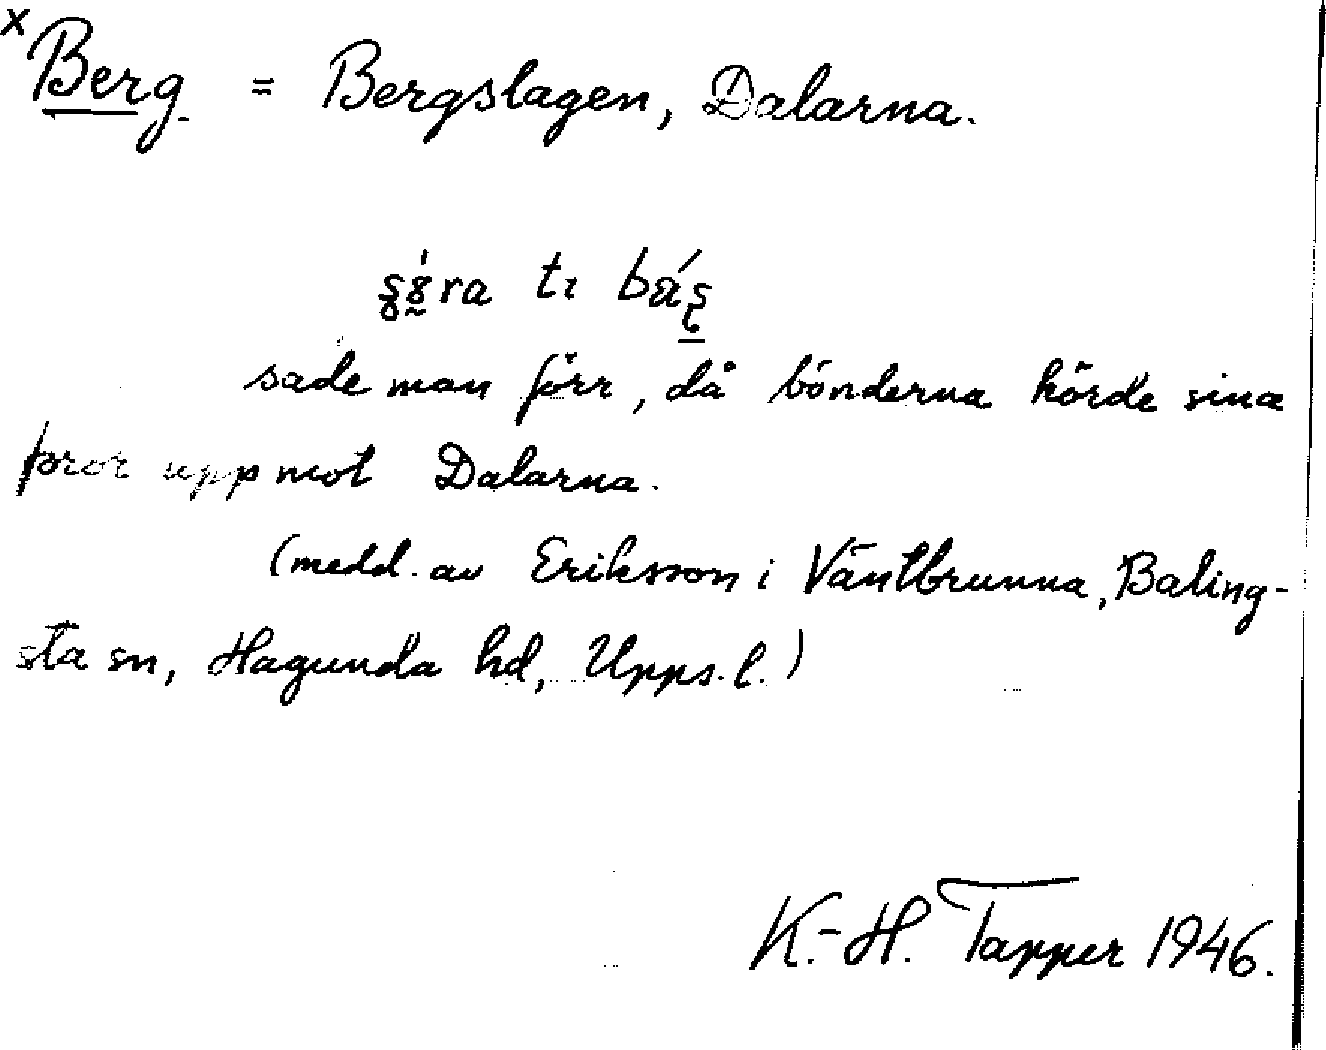 x Berg = Bergslagen, Dalarna.
sade man förr, då bönderna körde sina
foror upp mot Dalarna.
(medd. av Eriksson i Väntbrunna, Baling-
sta sn, Hagunda hd, Upps. l.)
K.-H. Tapper 1946.